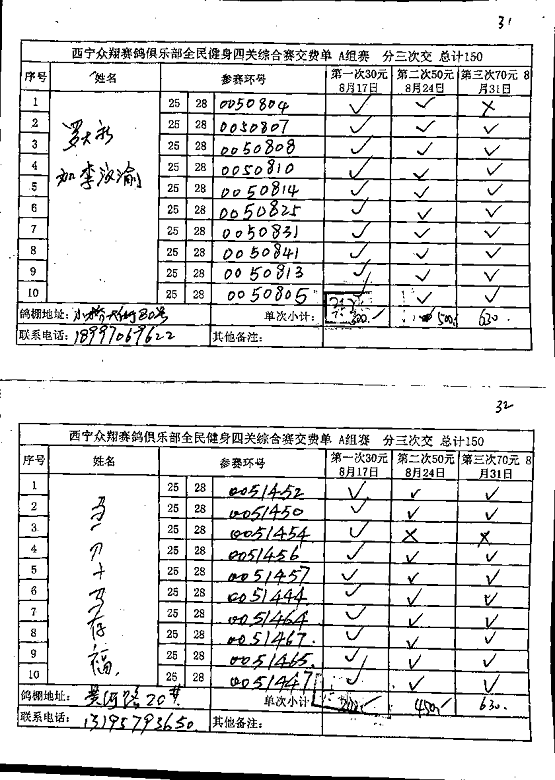 31
西宁众翔赛鸽俱乐部全民健身四关综合赛交费单 A组赛 分三次交 总计150
序号 姓名 参赛环号 第一次30元 8月17日 第二次50元 8月24日 第三次70元 8月31日
1 25 28 0050804 ✓ ✓ ×
2 25 28 0050807 ✓ ✓ ✓
3 25 28 0050808 ✓ ✓ ✓
4 25 28 0050810 ✓ ✓ ✓
5 25 28 0050814 ✓ ✓ ✓
6 25 28 0050825 ✓ ✓ ✓
7 25 28 0050831 ✓ ✓ ✓
8 25 28 0050841 ✓ ✓ ✓
9 25 28 0050813 ✓ ✓ ✓
10 25 28 0050805 ✓ ✓ ✓
鸽棚地址: 80号 单次小计: 300 500 630.
联系电话: 18997069622 其他备注:
32
西宁众翔赛鸽俱乐部全民健身四关综合赛交费单 A组赛 分三次交 总计150
序号 姓名 参赛环号 第一次30元 8月17日 第二次50元 8月24日 第三次70元 8月31日
1 25 28 0051452 ✓ ✓ ✓
2 马 25 28 0051450 ✓ ✓ ✓
3 25 28 0051454 ✓ × ×
4 25 28 0051456 ✓ ✓ ✓
5 25 28 0051457 ✓ ✓ ✓
6 马 25 28 0051444 ✓ ✓ ✓
7 存 25 28 0051464 ✓ ✓ ✓
8 25 28 0051467. ✓ ✓ ✓
9 福 25 28 0051465. ✓ ✓ ✓
10 25 28 0051447 ✓ ✓ ✓
鸽棚地址: 黄河路20 单次小计 450 630.
联系电话: 13195793650 其他备注: